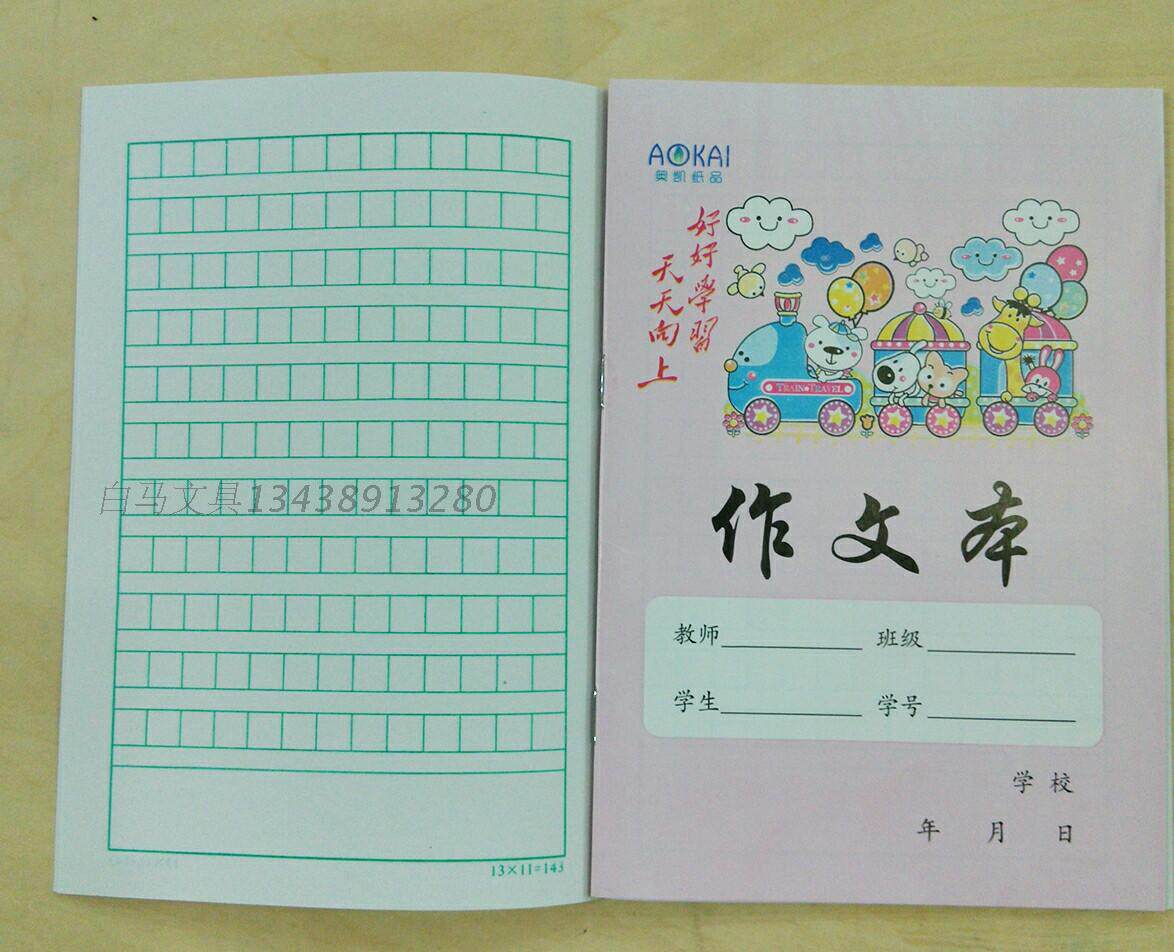 白马文具13438913280
13×11=143
AOKAI
奥凯纸品
好好學習
天天向上
TRAIN TRAVEL
作文本
教师 班级
学生 学号
学校
年 月 日